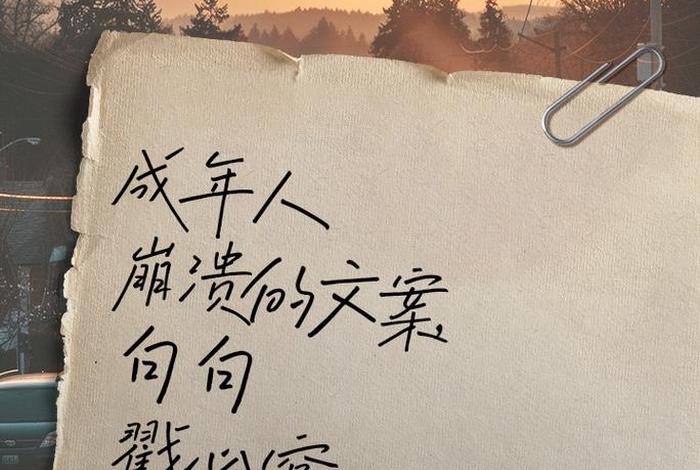 成年人
崩溃的文案
句句
戳心窝